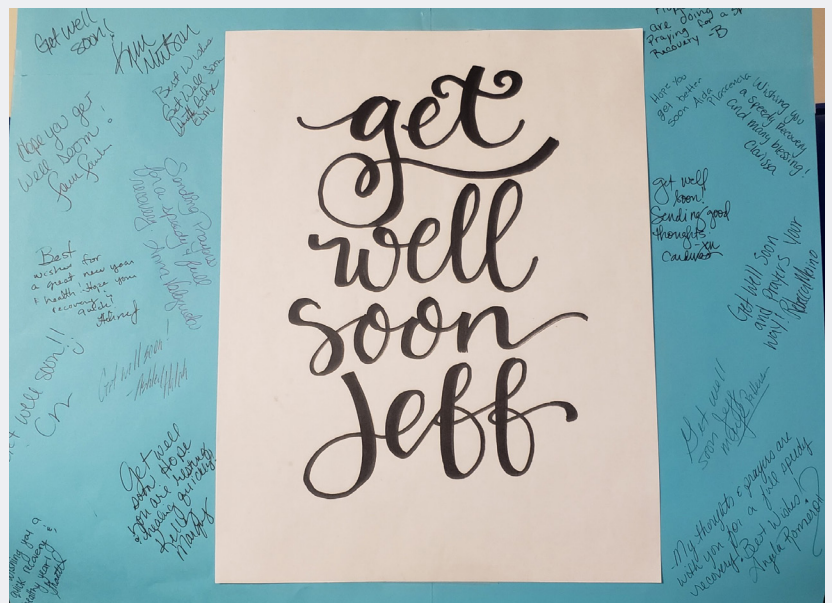 get
well
soon
Jeff
Get well
soon!
Kim
Watson
Best Wishes
Get Well Soon
Hope you get
well soon!
Sending Prayers
for a speedy & full
recovery
Best
wishes for
a great new year
& health! Hope your
recovery is
quick!
Get well soon!!
Get well soon!
Ashley
Get well
soon Hope
you are resting
& healing quickly!
Kelly
Murphy
wishing you a
quick recovery &
healthy year!
are doing
Praying for a
Recovery -B
Hope you
get better
soon Anita
Plascencia
Wishing you
a speedy recovery
and many blessing!
Clarissa
get well
soon!
Sending good
thoughts
Cardenas
Get Well Soon
and Prayers Your
way! Rebecca
Get well
soon Jeff
My thoughts & prayers are
with you for a full speedy
recovery. Best Wishes!
Angela Romero